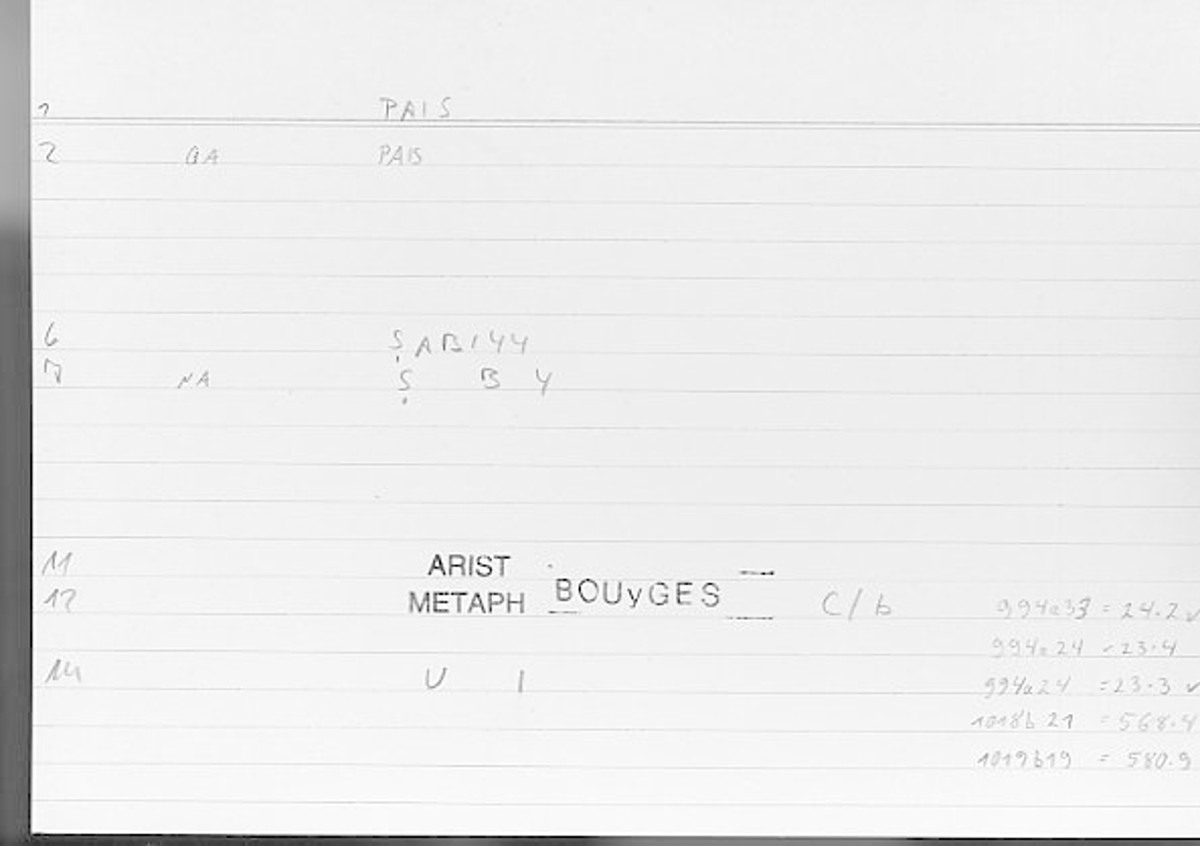 1 PAIS
2 GA PAIS
6 ṢABIYY
7 NA Ṣ B Y
11 ARIST
12 METAPH BOUyGES C/b 994a33 = 24.2 ✓
994a24 = 23.4
14 U I 994a24 = 23.3 ✓
1018b21 = 568.4
1019b19 = 580.9